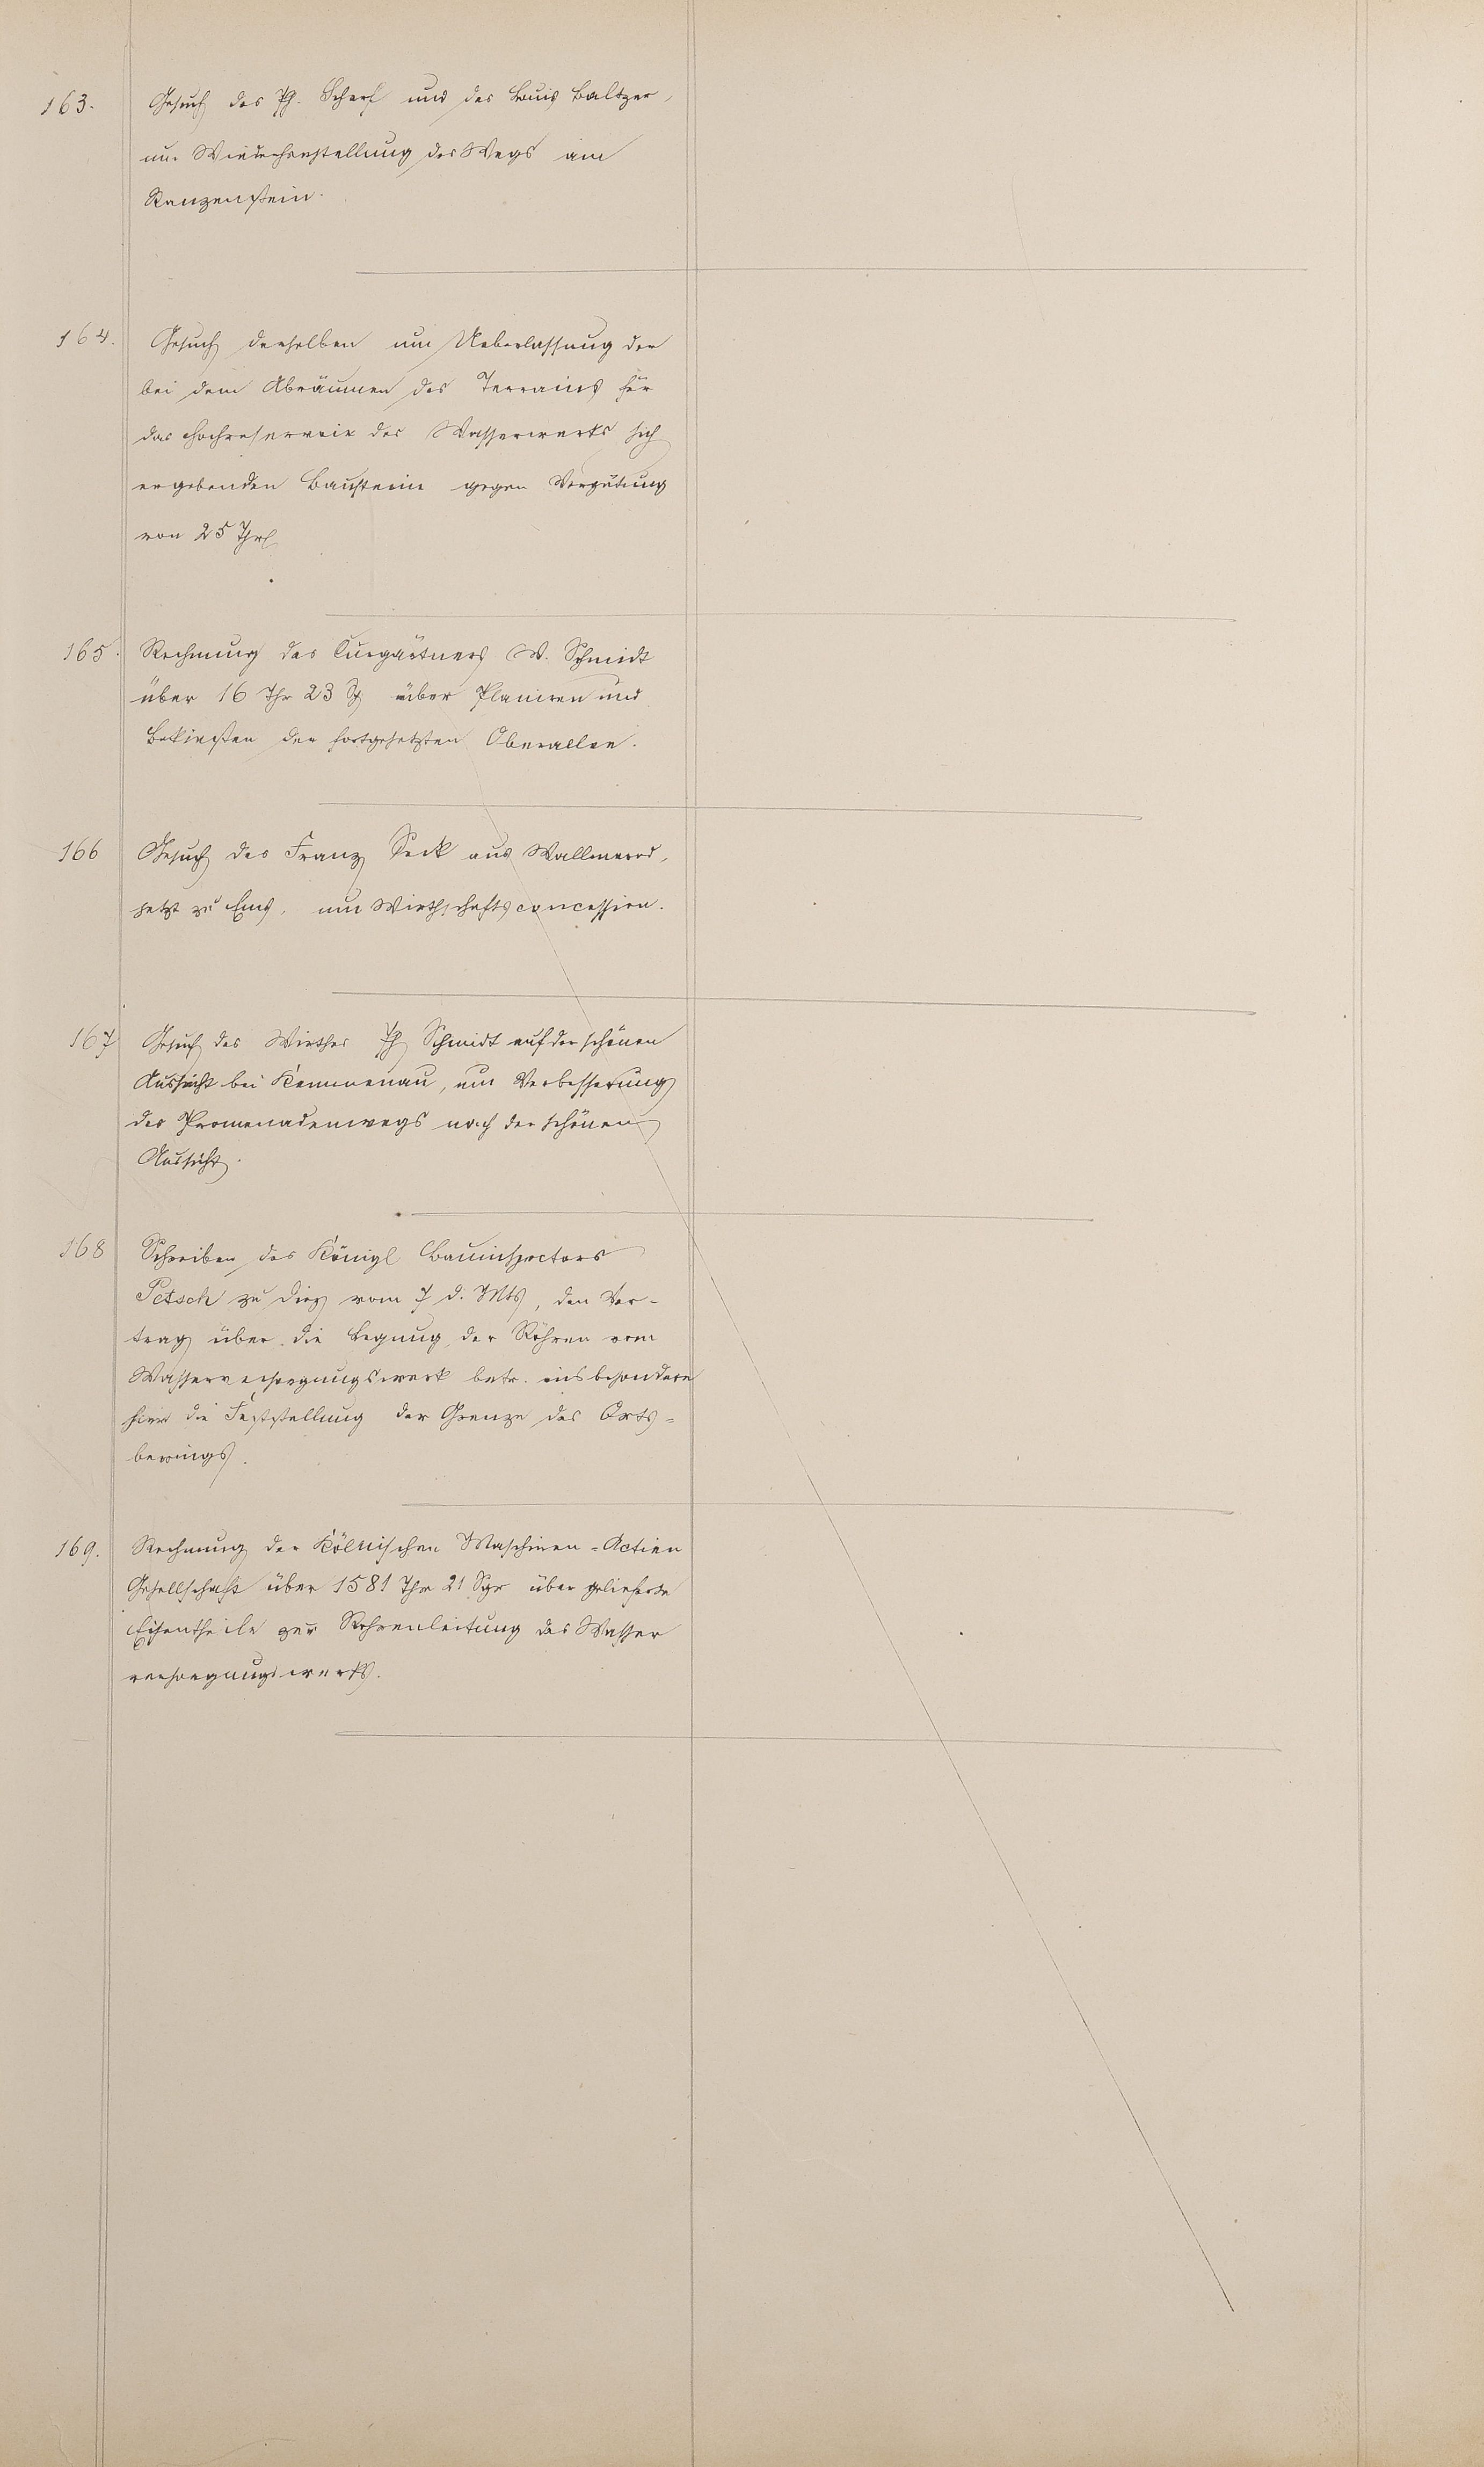 163. Gesuch des Ph. Scharf und des Louis Baltzer,
um Wiederherstellung des Wegs am
Kanzenstein.
164. Gesuch derselben um Ueberlassung der
bei dem Abräumen des Terrains für
das Hochreservoir des Wasserwerks sich
ergebenden Bausteine gegen Vergütung
von 25 Thrl
165. Rechnung des Curgärtners W. Schmidt
über 16 Thr 23 Sg über Planiren und
Bekiesten der fortgesetzten Oberallee.
166 Gesuch des Franz Seck aus Wallmerod,
jetzt zu Ems, um Wirthschaftsconcession.
167 Gesuch des Wirthes Ph Schmidt auf der schönen
Aussicht bei Kemmenau, um Verbesserung
des Promenadenwegs nach der schönen
Aussicht.
168 Schreiben des Königl Bauinspectors
Petsch zu Diez vom 7 d. Mts, den Ver-
trag über die Legung der Röhren vom
Wasserversorgungswerk betr. insbesondere
hier die Feststellung der Grenze des Orts-
berings.
169. Rechnung der Kölnischen Maschinen-Actien
Gesellschaft über 1581 Thr 21 Sgr über gelieferte
Eisentheile zur Rohrenleitung des Wasser
versorgungswerks.